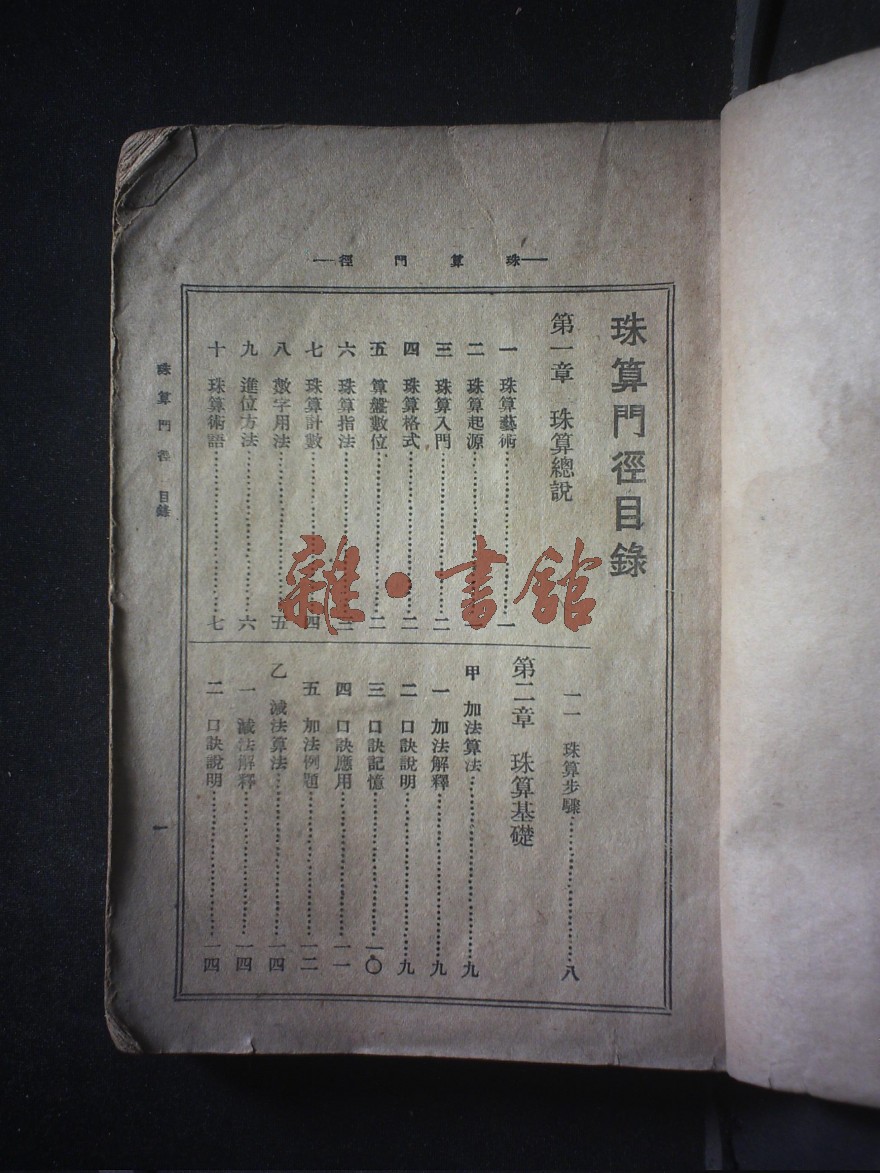 珠算門徑
珠算門徑目錄
第一章 珠算總說
一 珠算藝術……一
二 珠算起源……
三 珠算入門……二
四 珠算格式……二
五 算盤數位……二
六 珠算指法……三
七 珠算計數……四
八 數字用法……五
九 進位方法……六
十 珠算術語……七
一一 珠算步驟……八
第二章 珠算基礎
甲 加法算法……九
一 加法解釋……九
二 口訣說明……九
三 口訣記憶……一〇
四 口訣應用……一一
五 加法例題……一二
乙 減法算法……一四
一 減法解釋……一四
二 口訣說明……一四
珠算門徑 目錄
一
雜·書館